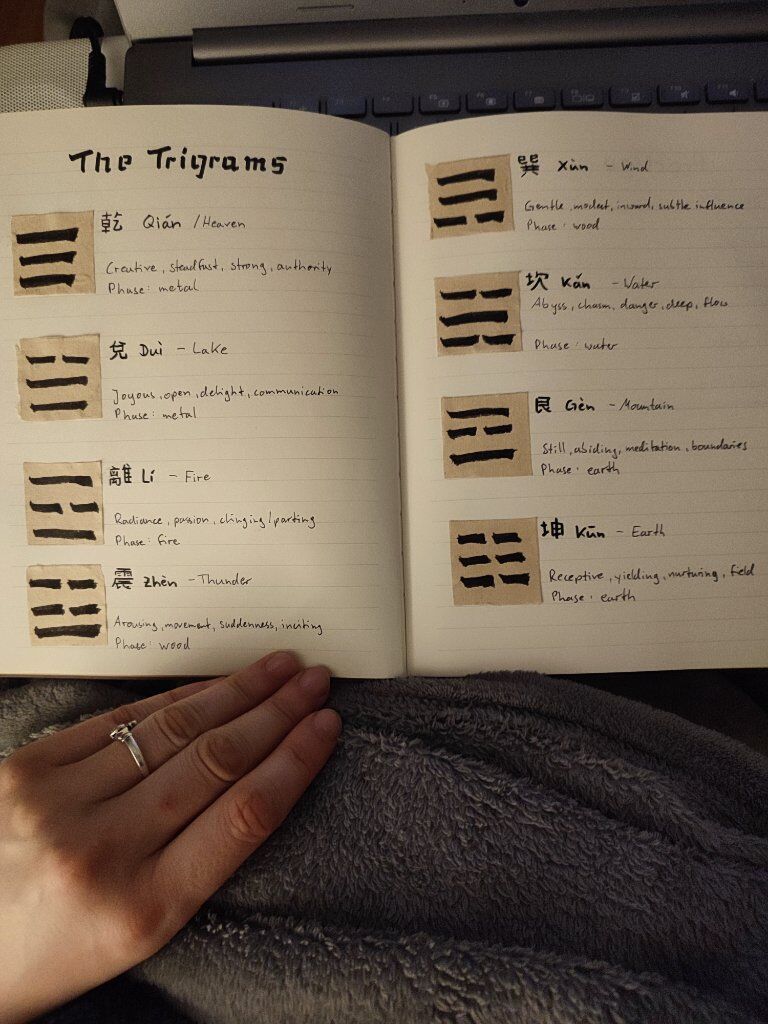 The Trigrams
乾 Qián / Heaven
Creative, steadfast, strong, authority
Phase: metal
兌 Duì - Lake
Joyous, open, delight, communication
Phase: metal
離 Lí - Fire
Radiance, passion, clinging/parting
Phase: fire
震 Zhèn - Thunder
Arousing, movement, suddenness, inciting
Phase: wood
巽 Xùn - Wind
Gentle, modest, inward, subtle influence
Phase: wood
坎 Kǎn - Water
Abyss, chasm, danger, deep, flow
Phase: water
艮 Gèn - Mountain
Still, abiding, meditation, boundaries
Phase: earth
坤 Kūn - Earth
Receptive, yielding, nurturing, field
Phase: earth